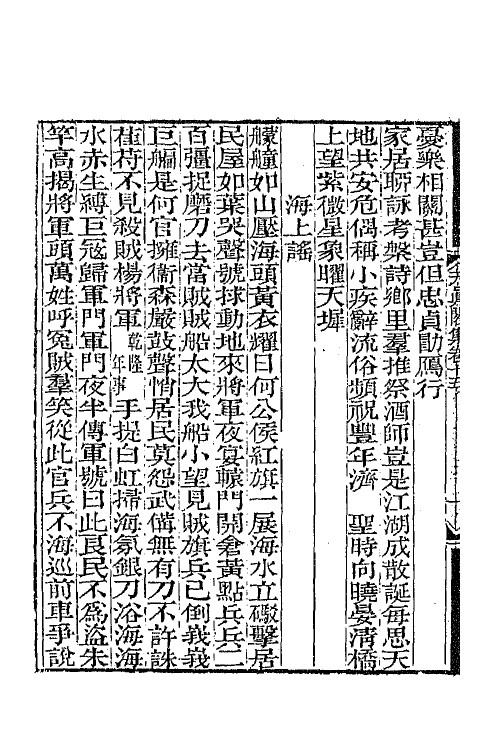 憂樂相關甚豈但忠貞勖鴈行
家居聊詠考槃詩鄉里羣推祭酒師豈是江湖成散誕每思天
地共安危偶稱小疾辭流俗頻祝豐年濟　聖時向曉晏清橋
上望紫微星象曜天墀
海上謠
艨艟如山壓海頭黃衣耀日何公侯紅旗一展海水立礮擊居
民屋如葉哭聲號拔動地來將軍夜宴轅門開倉黃點兵兵二
百彊捉磨刀去當賊賊船太大我船小望見賊旗兵已倒義義
巨艑是何官擁衞森嚴鼓聲悄居民莫怨武備無有刀不許誅
萑苻不見殺賊楊將軍乾隆年事手提白虹掃海氛銀刀浴海海
水赤坐縛巨寇歸軍門軍門夜半傳軍號曰此良民不爲盜朱
竿高揭將軍頭萬姓呼冤賊羣笑從此官兵不海巡前車爭說